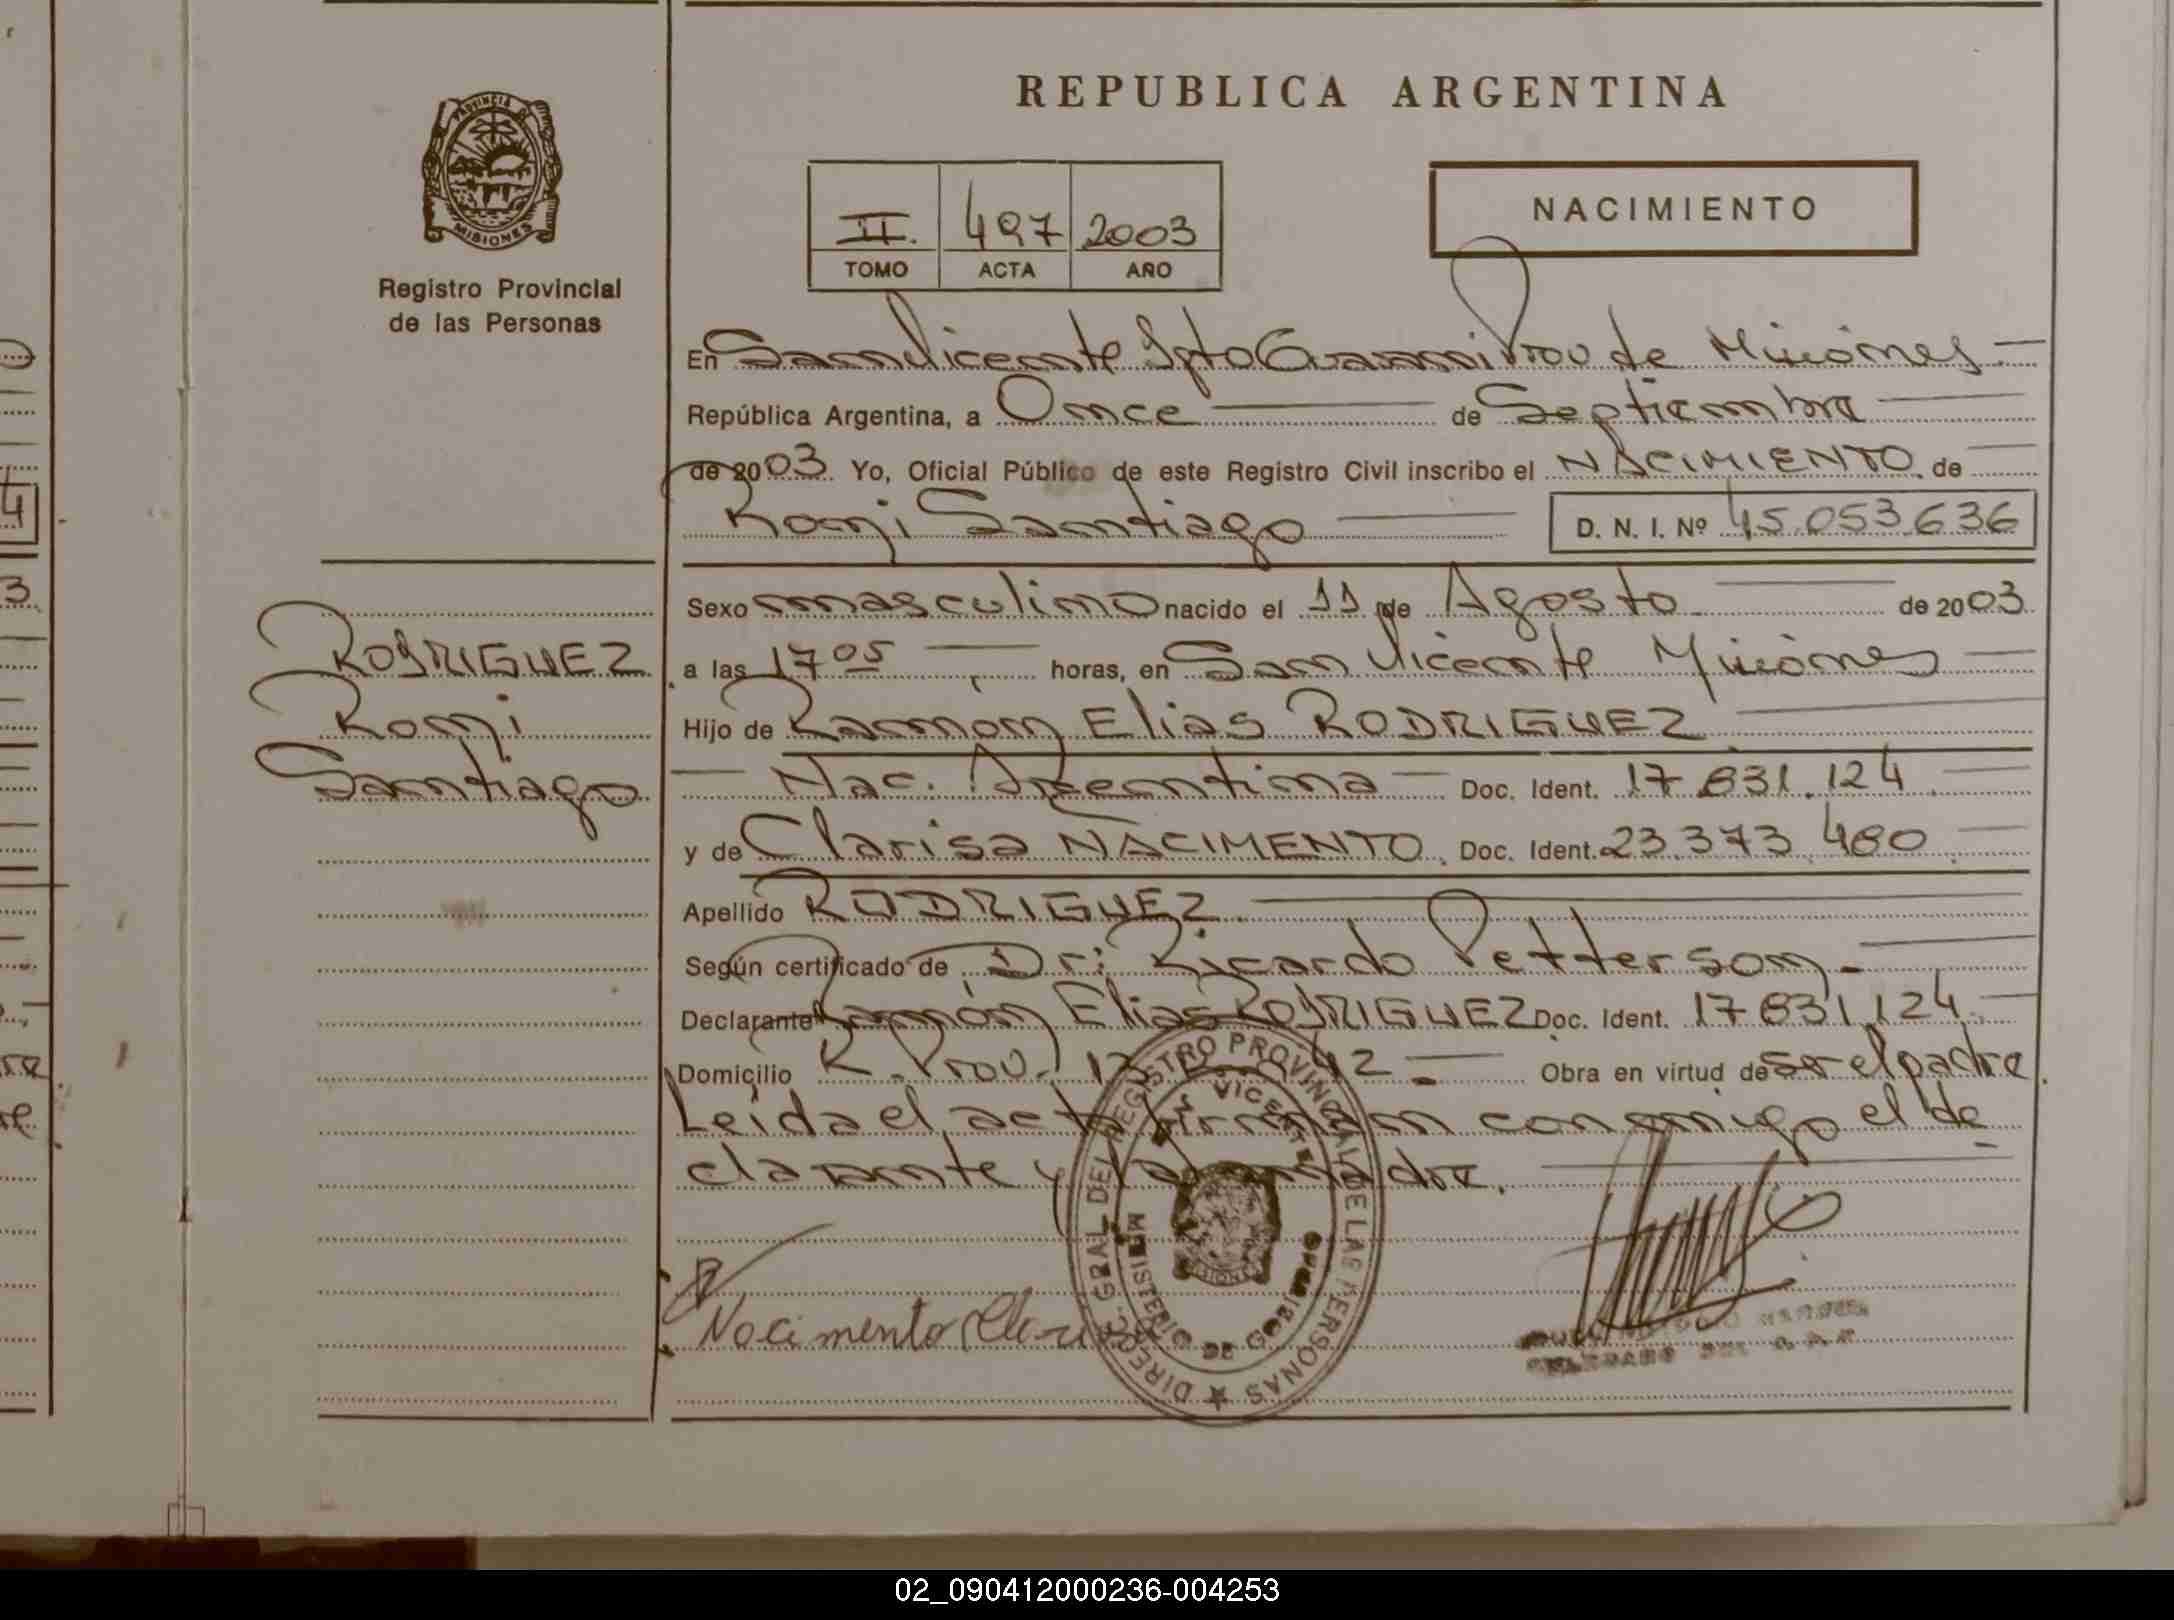 REPUBLICA ARGENTINA
PROVINCIA DE
MISIONES
Registro Provincial
de las Personas
II. 497 2003
TOMO ACTA AÑO
NACIMIENTO
En San Vicente Dpto Guarani Prov de Misiones
República Argentina, a Once de Septiembre
de 2003 Yo, Oficial Público de este Registro Civil inscribo el NACIMIENTO de
Romi Santiago D. N. I. Nº 45.053.636
Sexo masculino nacido el 11 de Agosto de 2003
RODRIGUEZ
Romi
Santiago
a las 17 05 horas, en San Vicente Misiones
Hijo de Ramón Elias RODRIGUEZ
Nac. Argentina Doc. Ident. 17.831.124
y de Clarisa NACIMENTO. Doc. Ident. 23.373.480
Apellido RODRIGUEZ.
Según certificado de Dr: Ricardo Petterson.
Declarante Ramón Elias RODRIGUEZ Doc. Ident. 17831124
Domicilio R. Prov. 42 Obra en virtud de ser el padre.
Leida el acta firman conmigo el de
clarante y la madre.
Nacimento Claris
DIREC. GRAL. DEL REGISTRO PROVINCIAL DE LAS PERSONAS
VICENTE
MINISTERIO DE GOBIERNO
02_090412000236-004253